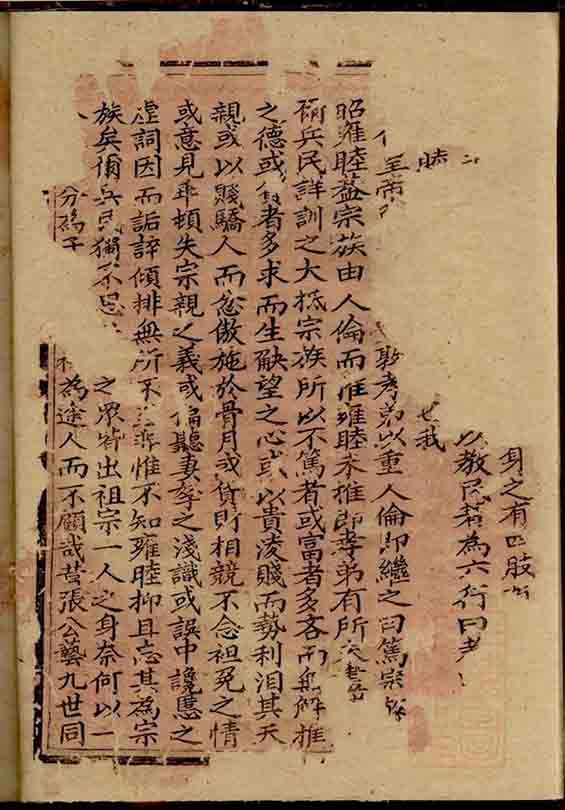 身之有四肢
以教民若為六行曰孝
睦 也我
皇帝 敦孝弟以重人倫即繼之曰篤宗族
昭雍睦蓋宗族由人倫而推雍睦未推即孝弟有所
爾兵民詳訓之大抵宗族所以不篤者或富者多吝而無解推
之德或貧者多求而生觖望之心或以貴凌賤而勢利汩其天
親或以賤驕人而忿傲施於骨肉或貨財相競不念袒免之情
或意見乖頓失宗親之義或偏聽妻孥之淺識或誤中讒慝之
虛詞因而詬誶傾排無所不至非惟不知雍睦抑且忘其為宗
族矣爾兵民獨不思 之眾皆出祖宗一人之身奈何以一
分為子 為途人而不顧哉昔張公藝九世同